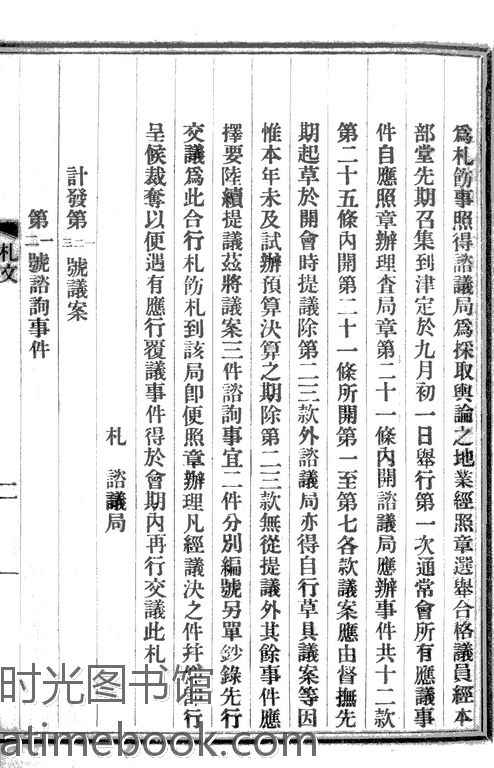 為札飭事照得諮議局為採取輿論之地業經照章選舉合格議員經本
部堂先期召集到津定於九月初一日舉行第一次通常會所有應議事
件自應照章辦理查局章第二十一條內開諮議局應辦事件共十二款
第二十五條內開第二十一條所開第一至第七各款議案應由督撫先
期起草於開會時提議除第二三款外諮議局亦得自行草具議案等因
惟本年未及試辦預算決算之期除第二三款無從提議外其餘事件應
擇要陸續提議茲將議案三件諮詢事宜二件分別編號另單鈔錄先行
交議為此合行札飭札到該局即便照章辦理凡經議決之件幷行
呈候裁奪以便遇有應行覆議事件得於會期內再行交議此札
札 諮議局
計發第一二三號議案
第一二號諮詢事件
札文
二
时光图书馆
atimebook.com